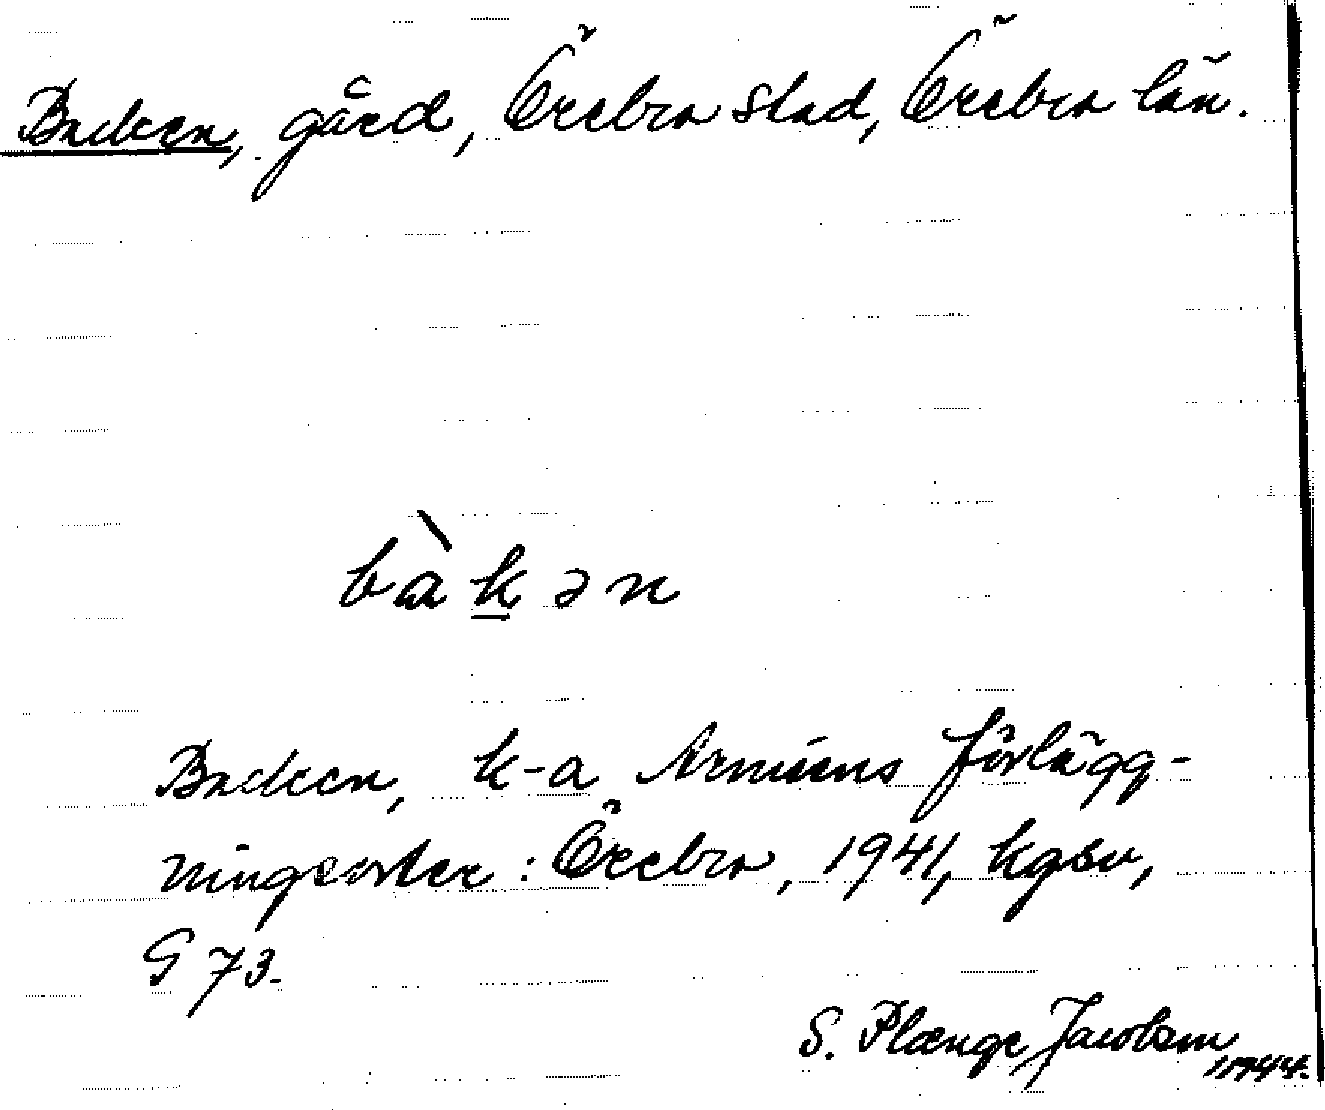 Backen, gård, Örebro stad, Örebro län.
bàkən
Backen, k-a Arméens förlägg-
ningsorter: Örebro, 1941, kgsv,
G 73.
S. Plænge Jacobson
1944.